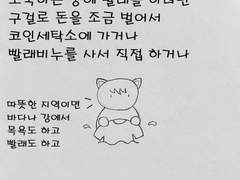 노숙하는 중에 빨래를 하려면
구걸로 돈을 조금 벌어서
코인세탁소에 가거나
빨래비누를 사서 직접 하거나
따뜻한 지역이면
바다나 강에서
목욕도 하고
빨래도 하고